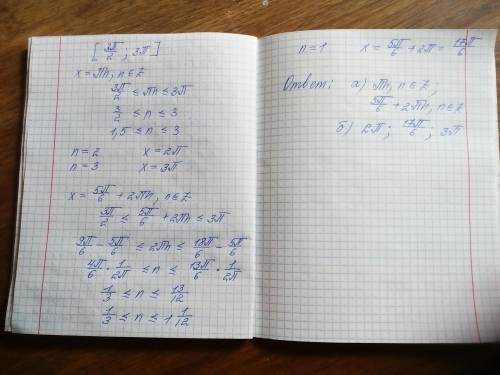 [3π/2 ; 3π]
x = πn, n ∈ Z
3π/2 ≤ πn ≤ 3π
3/2 ≤ n ≤ 3
1,5 ≤ n ≤ 3
n = 2 x = 2π
n = 3 x = 3π
x = 5π/6 + 2πn, n ∈ Z
3π/2 ≤ 5π/6 + 2πn ≤ 3π
9π/6 − 5π/6 ≤ 2πn ≤ 18π/6 − 5π/6
4π/6 · 1/2π ≤ n ≤ 13π/6 · 1/2π
1/3 ≤ n ≤ 13/12
1/3 ≤ n ≤ 1 1/12
n = 1 x = 5π/6 + 2π = 17π/6
Ответ: а) πn, n ∈ Z;
5π/6 + 2πn, n ∈ Z
б) 2π; 17π/6; 3π